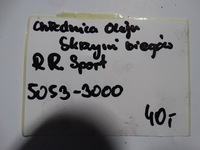 Chłodnica Oleju
Skrzyni biegów
R.R. Sport
5053-3000
40,-